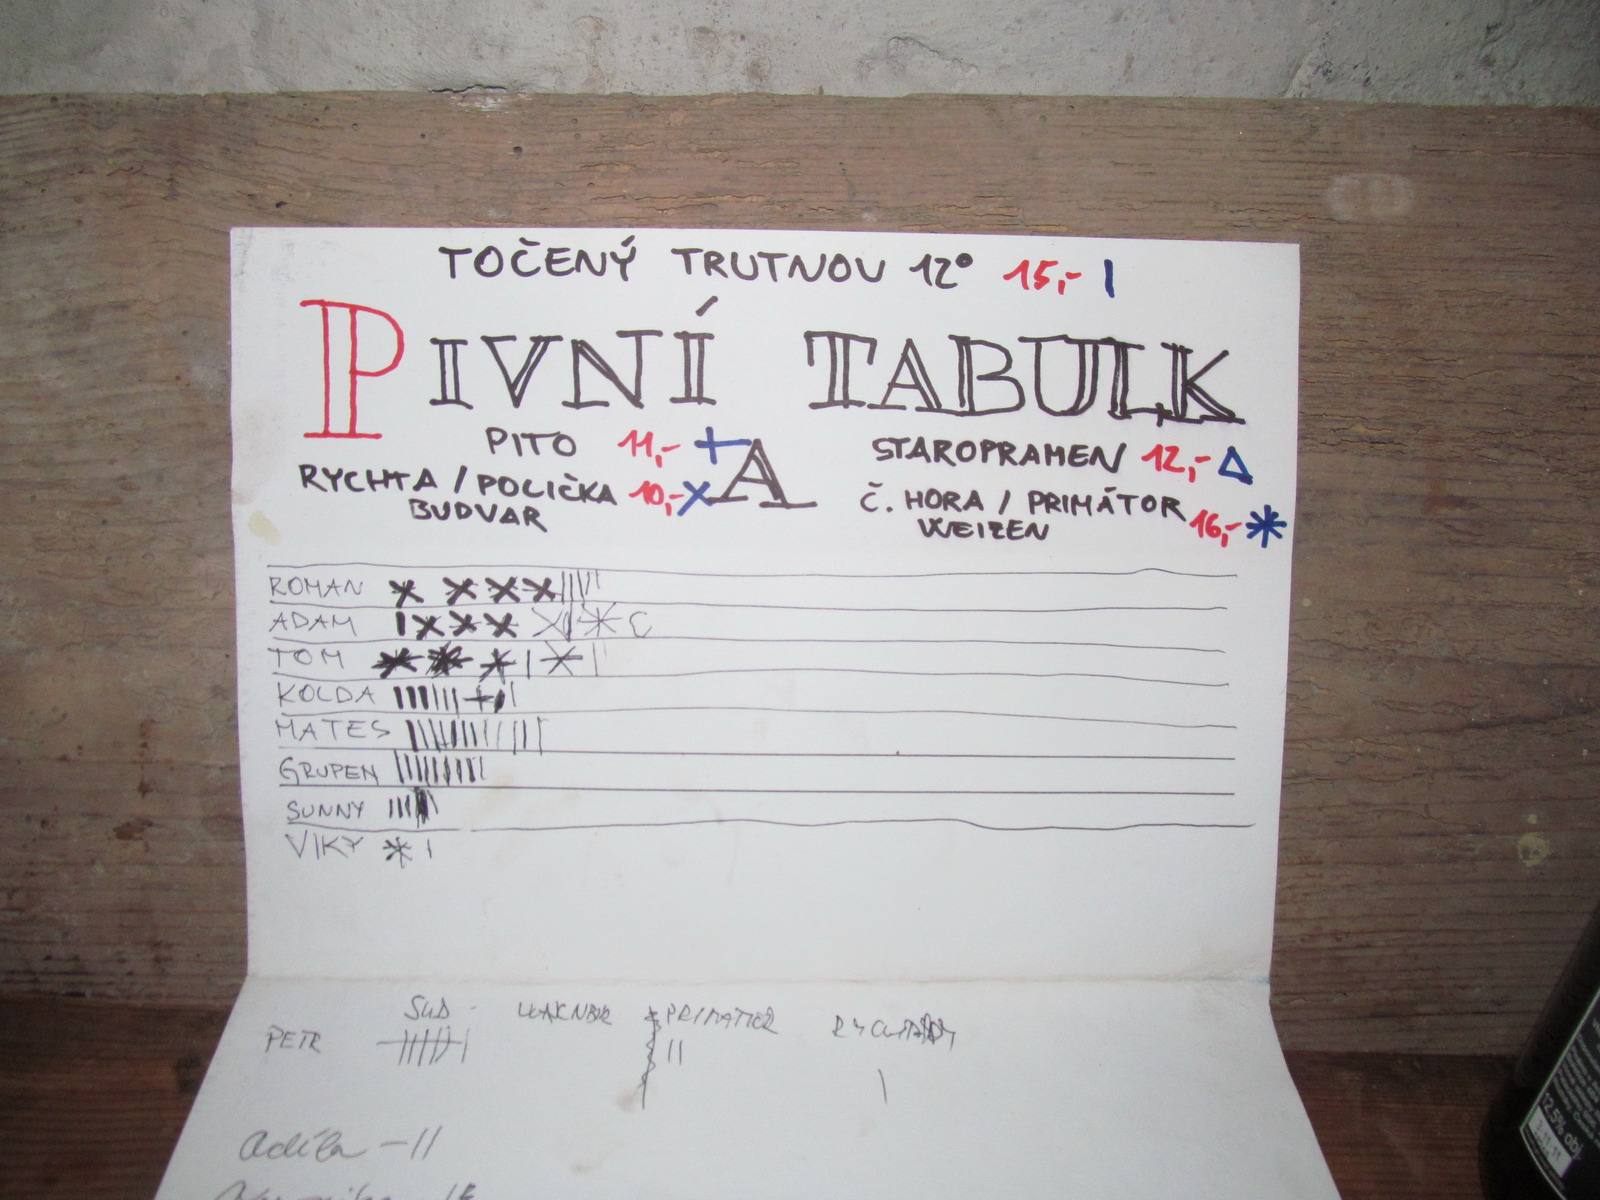 TOČENÝ TRUTNOV 12° 15,- |
PIVNÍ TABULK
A
PITO 11,- +
RYCHTA / POLIČKA 10,- X
BUDVAR
STAROPRAMEN 12,- Δ
Č. HORA / PRIMÁTOR 16,- *
WEIZEN
ROMAN
ADAM
TOM
KOLDA
MATES
GRUPEN
SUNNY
VIKY * |
SUD PRIMATOR
PETR
Adéla - ||
12,5% obj.